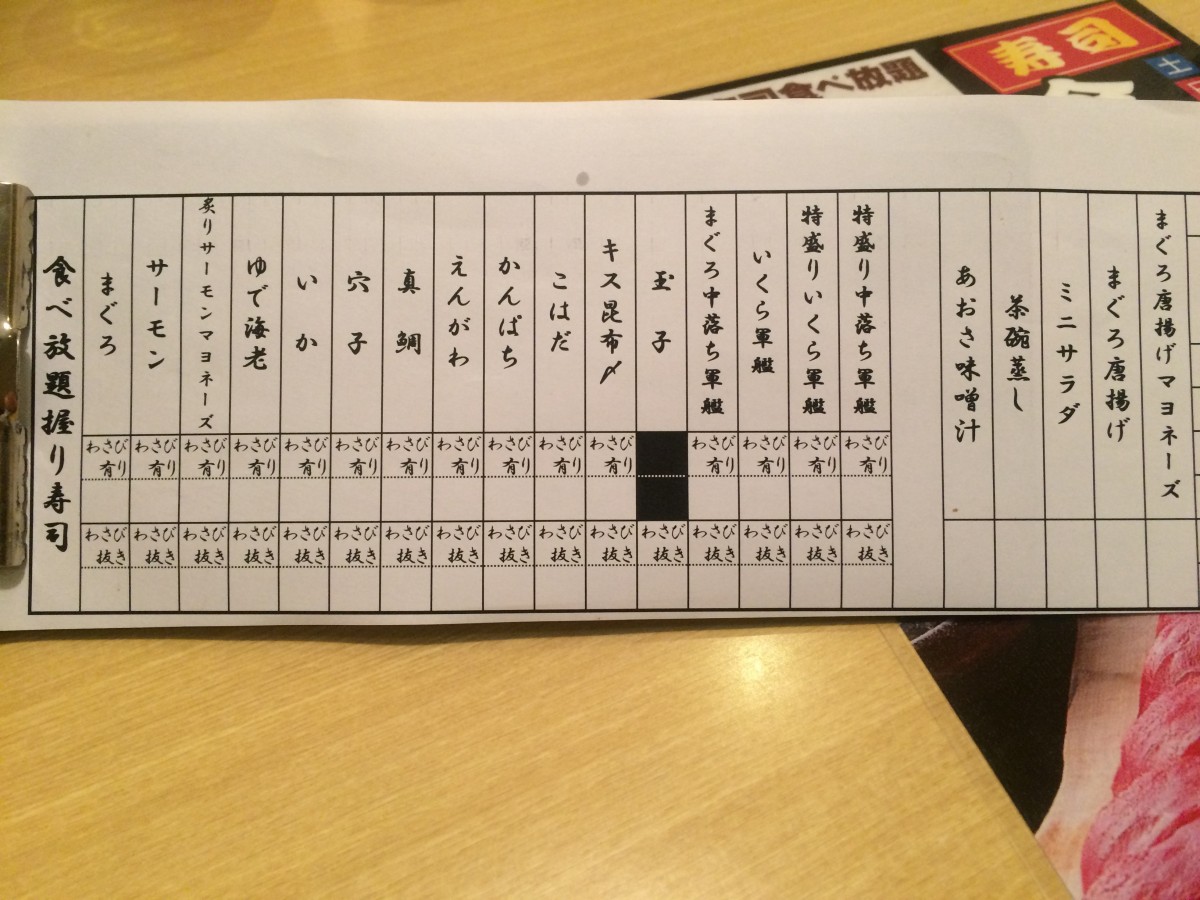 寿司
土
司食べ放題
食べ放題握り寿司
まぐろ
わさび有り
わさび抜き
サーモン
わさび有り
わさび抜き
炙りサーモンマヨネーズ
わさび有り
わさび抜き
ゆで海老
わさび有り
わさび抜き
いか
わさび有り
わさび抜き
穴子
わさび有り
わさび抜き
真鯛
わさび有り
わさび抜き
えんがわ
わさび有り
わさび抜き
かんぱち
わさび有り
わさび抜き
こはだ
わさび有り
わさび抜き
キス昆布〆
わさび有り
わさび抜き
玉子
わさび抜き
まぐろ中落ち軍艦
わさび有り
わさび抜き
いくら軍艦
わさび有り
わさび抜き
特盛りいくら軍艦
わさび有り
わさび抜き
特盛り中落ち軍艦
わさび有り
わさび抜き
あおさ味噌汁
茶碗蒸し
ミニサラダ
まぐろ唐揚げ
まぐろ唐揚げマヨネーズ